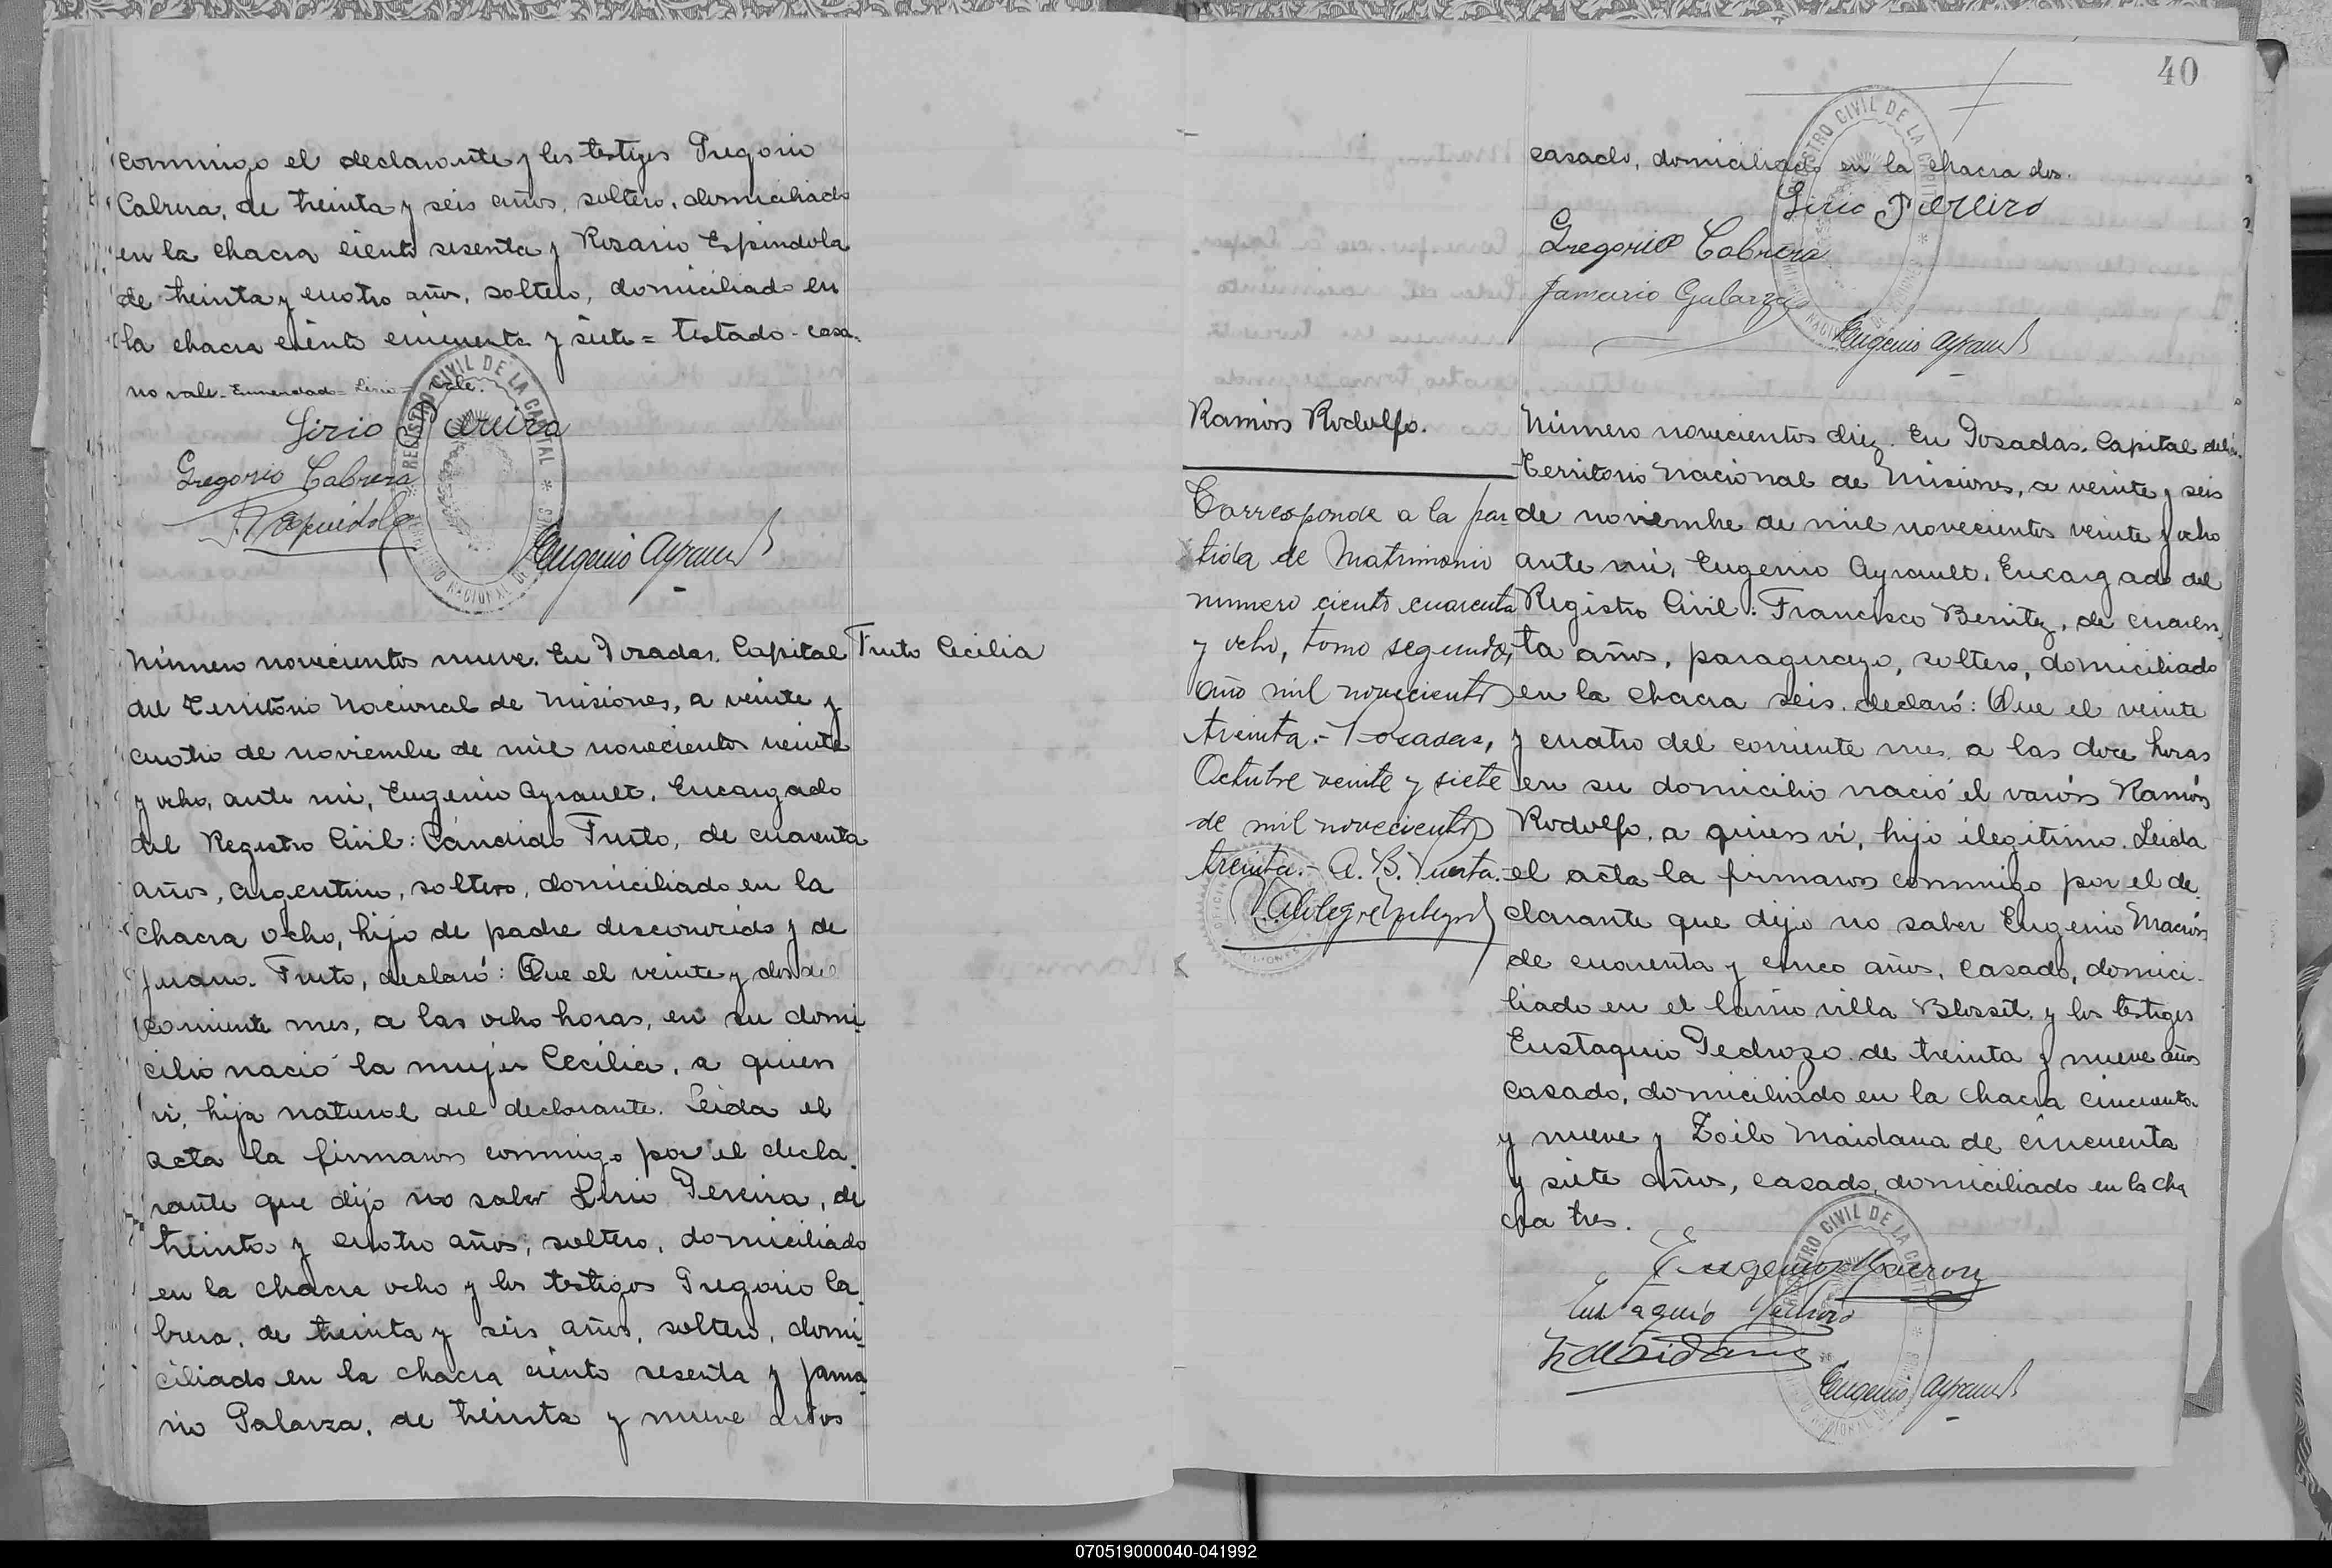 conmigo el declarante y los testigos Gregorio
Cabrera, de treinta y seis años, soltero, domiciliado
en la chacra ciento sesenta y Rosario Espindola
de treinta y cuatro años, soltero, domiciliado en
la chacra ciento cincuenta y siete = testado - casa.
no vale - Enmendado = Lirio = vale.
Lirio Pereira
Gregorio Cabrera
R Espindola
Eugenio Ayrault
REGISTRO CIVIL DE LA CAPITAL
Fruto Cecilia
Número novecientos nueve. En Posadas, Capital
del Territorio Nacional de Misiones, a veinte y
cuatro de noviembre de mil novecientos veinte
y ocho, ante mi, Eugenio Ayrault, Encargado
del Registro Civil: Cándido Fruto, de cuarenta
años, argentino, soltero, domiciliado en la
chacra ocho, hijo de padre desconocido y de
Juana Fruto, declaró: Que el veinte y dos del
corriente mes, a las ocho horas, en su domi
cilio nació la mujer Cecilia, a quien
vi, hija natural del declarante. Leida el
acta la firmaron conmigo por el decla
rante que dijo no saber Lirio Pereira, de
treinta y cuatro años, soltero, domiciliado
en la chacra ocho y los testigos Gregorio Ca
brera, de treinta y seis años, soltero, domi
ciliado en la chacra ciento sesenta y Janua
rio Galarza, de treinta y nueve años
40
casado, domiciliado en la chacra dos.
Lirio Pereiro
Gregorio Cabrera
Januario Galarza
Eugenio Ayrault
REGISTRO CIVIL DE LA CAPITAL
Ramón Rodolfo.
Corresponde a la par
tida de Matrimonio
numero ciento cuarenta
y ocho, tomo segundo,
año mil novecientos
treinta.- Posadas,
Octubre veinte y siete
de mil novecientos
treinta.- A. B. Puerta.
Número novecientos diez. En Posadas, Capital del
Territorio Nacional de Misiones, a veinte y seis
de noviembre de mil novecientos veinte y ocho
ante mi, Eugenio Ayrault, Encargado del
Registro Civil: Francisco Benitez, de cuaren
ta años, paraguayo, soltero, domiciliado
en la chacra seis, declaró: Que el veinte
y cuatro del corriente mes, a las doce horas
en su domicilio nació el varón Ramón
Rodolfo, a quien vi, hijo ilegitimo. Leida
el acta la firmaron conmigo por el de
clarante que dijo no saber Eugenio Macrón
de cuarenta y cinco años, casado, domici
liado en el barrio villa Blosset, y los testigos
Eustaquio Pedrozo de treinta y nueve años
casado, domiciliado en la chacra cincuenta
y nueve y Zoilo Maidana de cincuenta
y siete años, casado, domiciliado en la cha
cra tres.
Eugenio Macron
Eustaquio Pedrozo
Z Maidana
Eugenio Ayrault
REGISTRO CIVIL DE LA CAPITAL
070519000040-041992